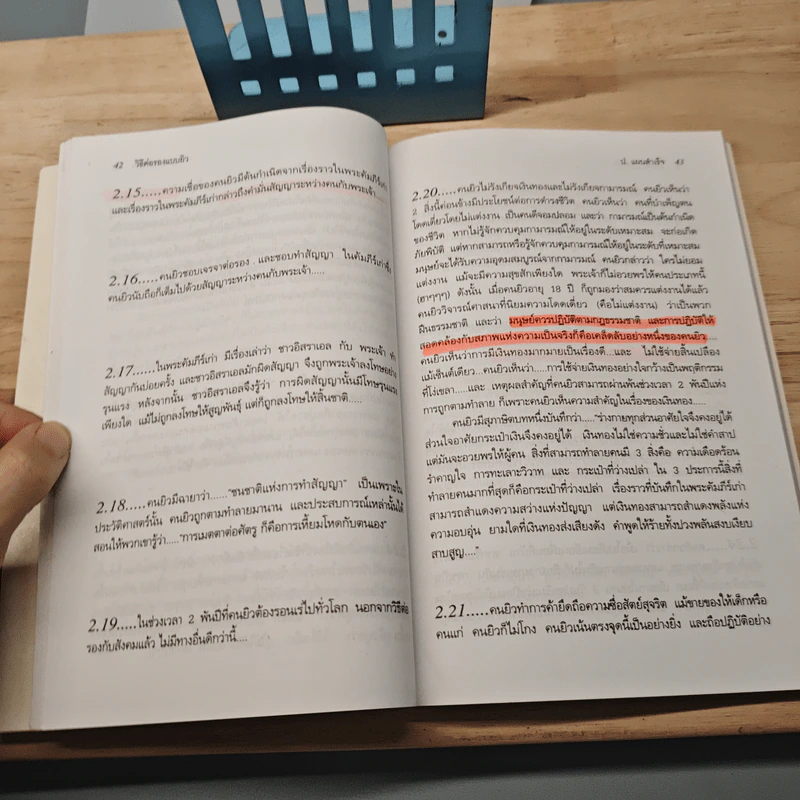 42 วิธีต่อรองแบบยิว
2.15.....ความเชื่อของคนยิวมีต้นกำเนิดจากเรื่องราวในพระคัมภีร์เก่า
และเรื่องราวในพระคัมภีร์เก่ากล่าวถึงคำมั่นสัญญาระหว่างคนกับพระเจ้า....
2.16.....คนยิวชอบเจรจาต่อรอง และชอบทำสัญญา ในคัมภีร์เก่าซึ่ง
คนยิวนับถือก็เต็มไปด้วยสัญญาระหว่างคนกับพระเจ้า.....
2.17.....ในพระคัมภีร์เก่า มีเรื่องเล่าว่า ชาวอิสราเอล กับ พระเจ้า ทำ
สัญญากันบ่อยครั้ง และชาวอิสราเอลมักผิดสัญญา จึงถูกพระเจ้าลงโทษอย่าง
รุนแรง หลังจากนั้น ชาวอิสราเอลจึงรู้ว่า การผิดสัญญานั้นมีโทษรุนแรง
เพียงใด แม้ไม่ถูกลงโทษให้สูญพันธุ์ แต่ก็ถูกลงโทษให้สิ้นชาติ.....
2.18.....คนยิวมีฉายาว่า....."ชนชาติแห่งการทำสัญญา" เป็นเพราะใน
ประวัติศาสตร์นั้น คนยิวถูกทำลายมานาน และประสบการณ์เหล่านั้นได้
สอนให้พวกเขารู้ว่า....."การเมตตาต่อศัตรู ก็คือการเหี้ยมโหดกับตนเอง"
2.19.....ในช่วงเวลา 2 พันปีที่คนยิวต้องรอนเร่ไปทั่วโลก นอกจากวิธีต่อ
รองกับสังคมแล้ว ไม่มีทางอื่นดีกว่านี้....
ป. แผนสำเร็จ 43
2.20.....คนยิวไม่รังเกียจเงินทองและไม่รังเกียจกามารมณ์ คนยิวเห็นว่า
2 สิ่งนี้ค่อนข้างมีประโยชน์ต่อการดำรงชีวิต คนยิวเห็นว่า คนที่บำเพ็ญตน
โดดเดี่ยวโดยไม่แต่งงาน เป็นคนดีจอมปลอม และว่า กามารมณ์เป็นต้นกำเนิด
ของชีวิต หากไม่รู้จักควบคุมกามารมณ์ให้อยู่ในระดับเหมาะสม จะก่อเกิด
ภัยพิบัติ แต่หากสามารถหรือรู้จักควบคุมกามารมณ์ให้อยู่ในระดับที่เหมาะสม
มนุษย์จะได้รับความอุดมสมบูรณ์จากกามารมณ์ คนยิวกล่าวว่า ใครไม่ยอม
แต่งงาน แม้จะมีความสุขสักเพียงใด พระเจ้าก็ไม่อวยพรให้คนประเภทนี้
(ฮาๆๆๆ) ดังนั้น เมื่อคนยิวอายุ 18 ปี ก็ถูกมองว่าสมควรแต่งงานได้แล้ว
คนยิววิจารณ์ศาสนาที่นิยมความโดดเดี่ยว (คือไม่แต่งงาน) ว่าเป็นพวก
ฝืนธรรมชาติ และว่า มนุษย์ควรปฏิบัติตามกฎธรรมชาติ และการปฏิบัติให้
สอดคล้องกับสภาพแห่งความเป็นจริงก็คือเคล็ดลับอย่างหนึ่งของคนยิว....
คนยิวเห็นว่าการมีเงินทองมากมายเป็นเรื่องดี...และ ไม่ใช้จ่ายสิ้นเปลือง
แม้เซ็นต์เดียว...คนยิวเห็นว่า.....การใช้จ่ายเงินอย่างไรกว้างเป็นพฤติกรรม
ที่โง่เขลา.....และ เหตุผลสำคัญที่คนยิวสามารถผ่านพ้นช่วงเวลา 2 พันปีแห่ง
การถูกตามทำลาย ก็เพราะคนยิวเห็นความสำคัญในเรื่องของเงินทอง.....
คนยิวมีสุภาษิตบทหนึ่งบันทึกว่า....."ร่างกายทุกส่วนอาศัยใจจึงคงอยู่ได้
ส่วนใจอาศัยกระเป๋าเงินจึงคงอยู่ได้ เงินทองไม่ใช่ความชั่วและไม่ใช่คำสาป
แต่มันจะอวยพรให้ผู้คน สิ่งที่สามารถทำลายคนมี 3 สิ่งคือ ความเดือดร้อน
รำคาญใจ การทะเลาะวิวาท และ กระเป๋าที่ว่างเปล่า ใน 3 ประการนี้สิ่งที่
ทำลายคนมากที่สุดก็คือกระเป๋าที่ว่างเปล่า เรื่องราวที่บันทึกในพระคัมภีร์เก่า
สามารถสำแดงความสว่างแห่งปัญญา แต่เงินทองสามารถสำแดงพลังแห่ง
ความอบอุ่น ยามใดที่เงินทองส่งเสียงดัง คำพูดให้ร้ายทั้งปวงพลันสงบเงียบ
สาบสูญ...."
2.21.....คนยิวทำการค้ายึดถือความซื่อสัตย์สุจริต แม้ขายของให้เด็กหรือ
คนแก่ คนยิวก็ไม่โกง คนยิวเน้นตรงจุดนี้เป็นอย่างยิ่ง และถือปฏิบัติอย่าง